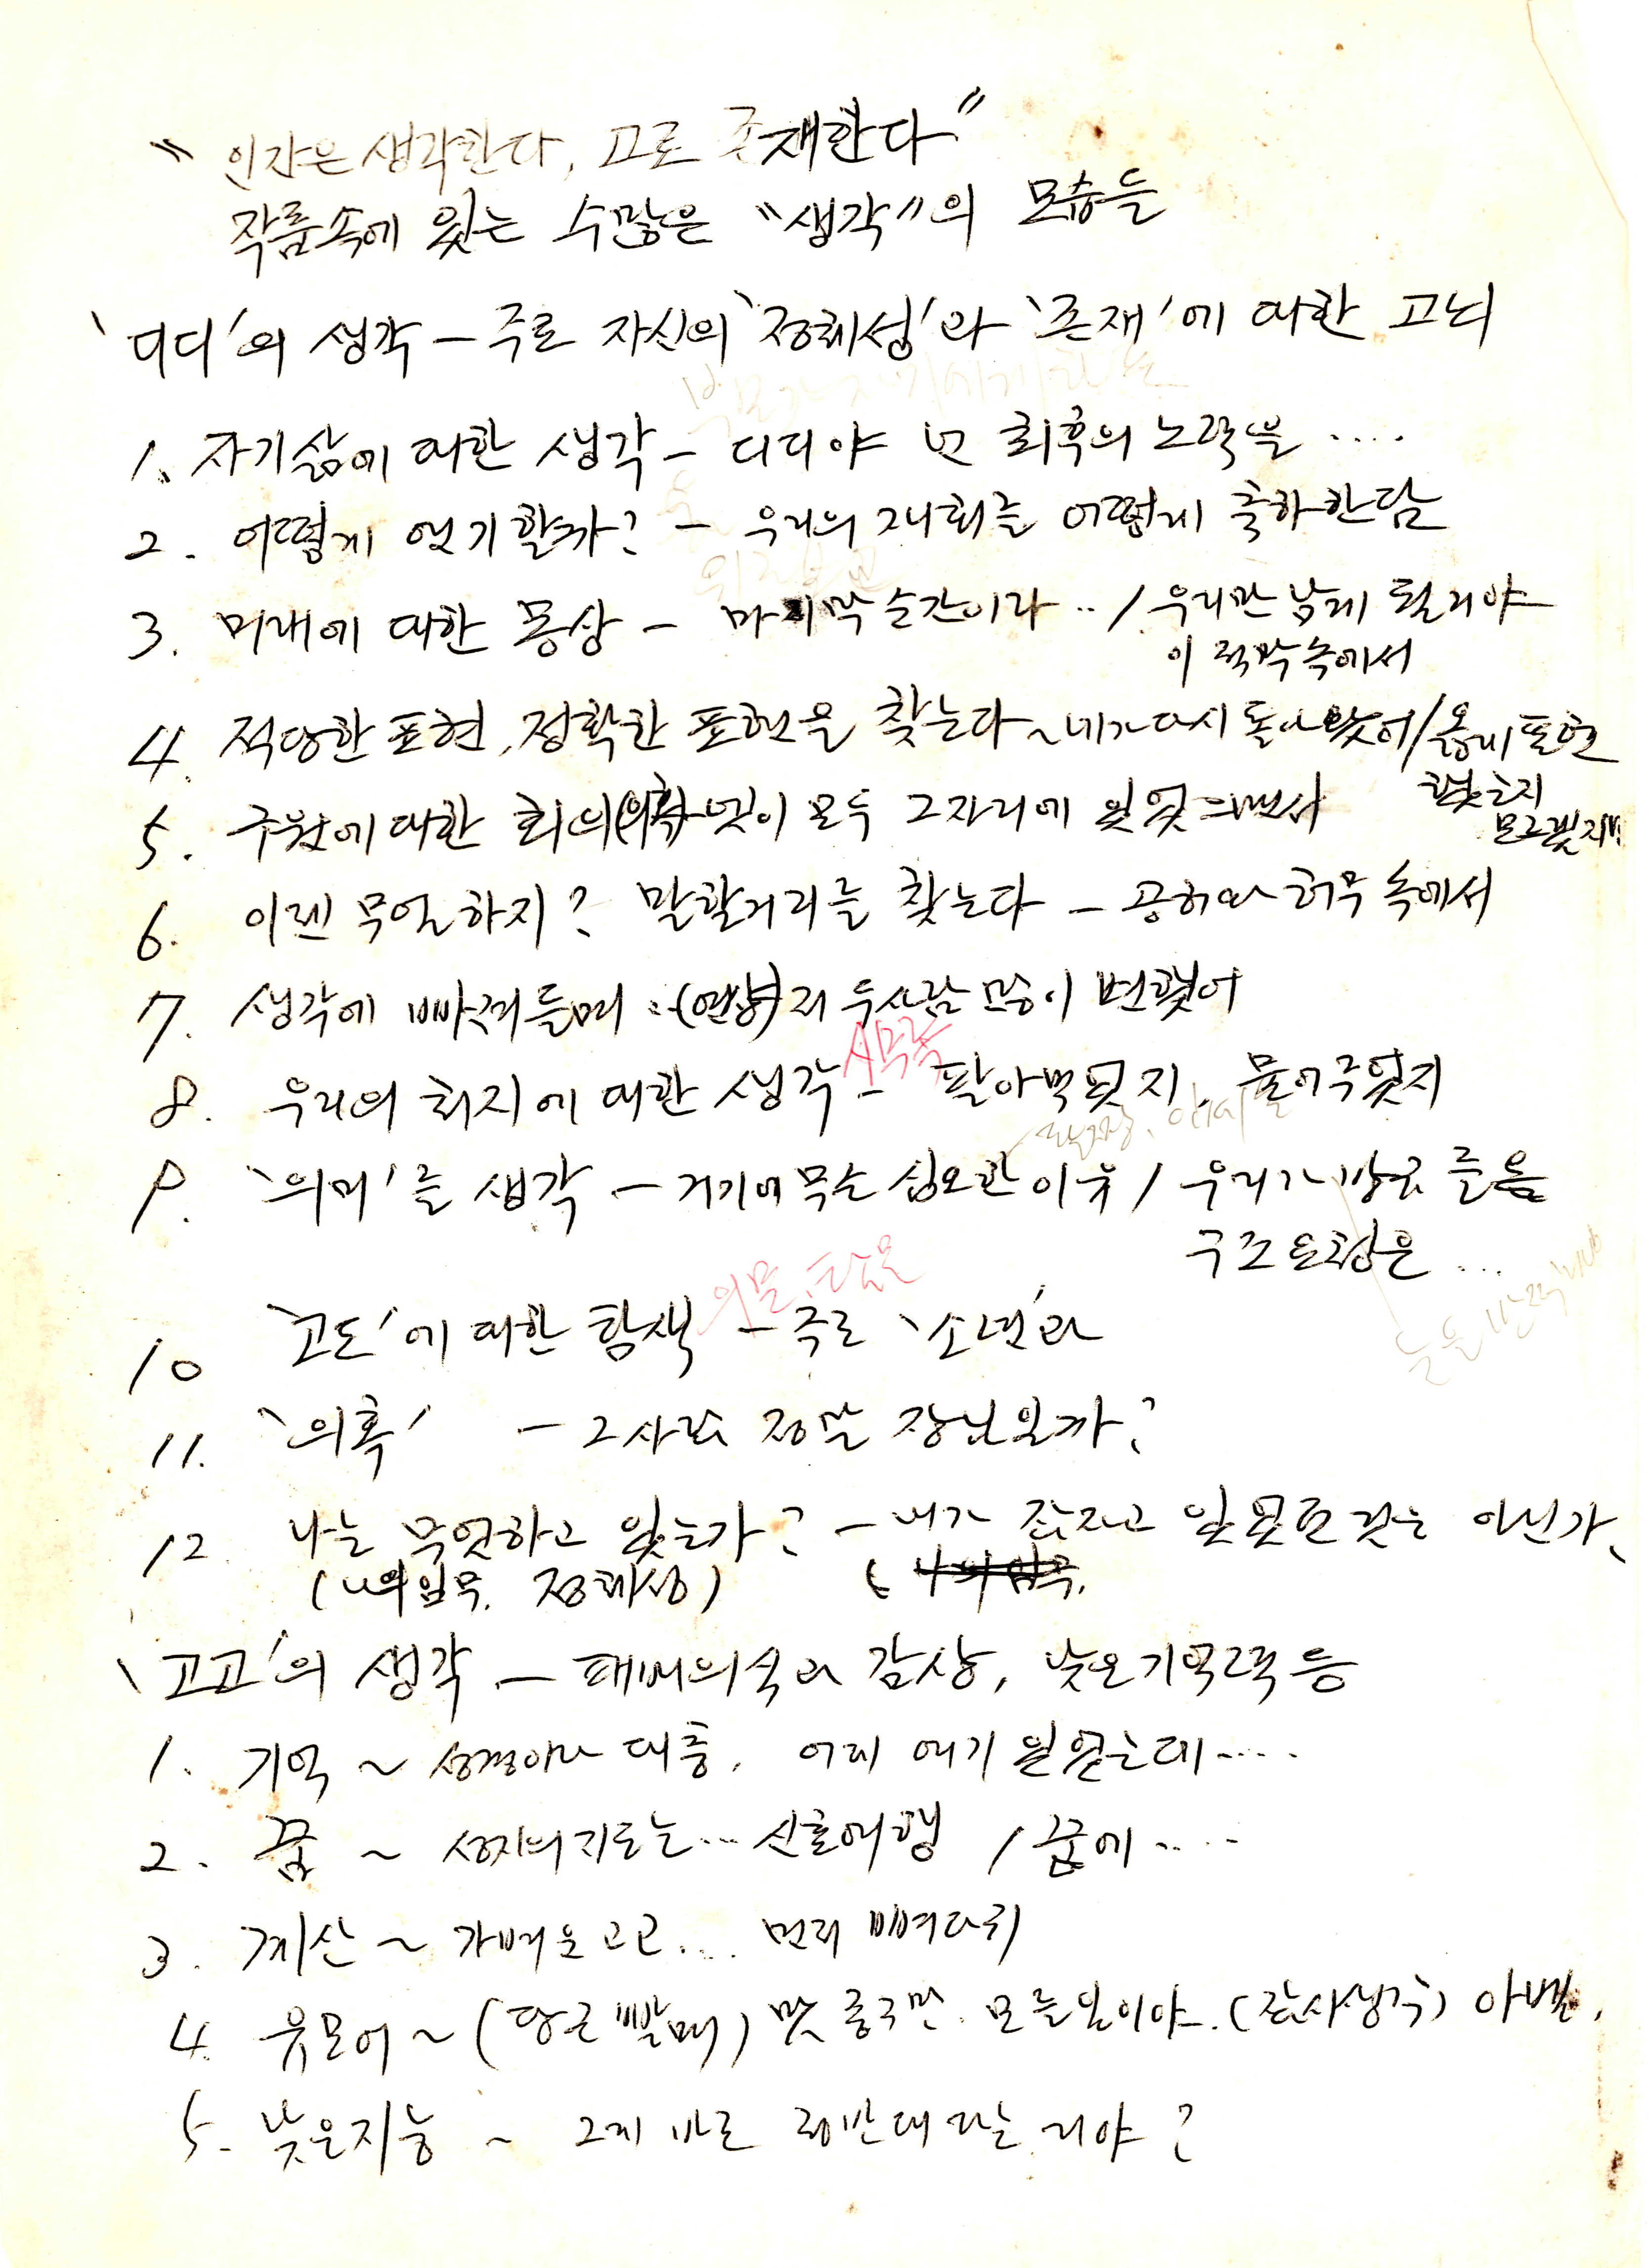 "인간은 생각한다, 고로 존재한다"
작품속에 있는 수많은 "생각"의 모습들
'디디'의 생각 - 주로 자신의 '정체성'과 '존재'에 대한 고뇌
1. 자기삶에 대한 생각 - 디디야 넌 최후의 노력을 ....
2. 어떻게 얘기할까? - 우리의 재회를 어떻게 축하한담
3. 미래에 대한 몽상 - 마지막 순간이라 .. / 우리만 남게 될거야
이 적막속에서
4. 적당한 표현, 정확한 표현을 찾는다 ~ 네가 다시 돌아왔어 / 옳게 표현
했는지
모르겠지만
5. 구원에 대한 회의(의혹) - 넷이 모두 그자리에 있었으면서
6. 이젠 무얼하지? 말할거리를 찾는다 - 공허와 허무 속에서
7. 생각에 빠져들며 : 저 두사람 많이 변했어
8. 우리의 처지에 대한 생각 - 팔아먹었지, 물어주었지
9. '의미'를 생각 - 거기에 무슨 심오한 이유 / 우리가 방금 들은
구조요청은 ...
10 '고도'에 대한 탐색 - 주로 '소년'과
의문,
11. '의혹' - 그사람 정말 장님일까?
12. 나는 무엇하고 있는가? - 내가 잠자고 있었던 것은 아닌가,
(나의임무. 정체성)
'고고'의 생각 - 패배의식과 감상, 낮은기억력 등
1. 기억 ~ 성경이나 대충, 어제 여기 있었는데 ....
2. 꿈 ~ 성지의지도는 ... 신혼여행 / 꿈에 ....
3. 계산 ~ 가벼운 고고 ... 먼저
4. 유모어 ~ (당근 빨며) 맛 좋구만. 모를일이야. (잠시생각) 아벨.
5. 낮은지능 ~ 그게 바로 정반대라는 거야?